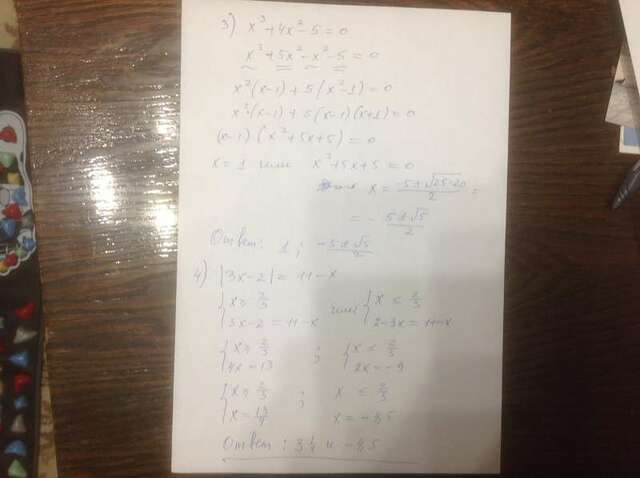 3) x³+4x²-5=0
x³+5x²-x²-5=0
x²(x-1)+5(x²-1)=0
x²(x-1)+5(x-1)(x+1)=0
(x-1)(x²+5x+5)=0
x=1 или x²+5x+5=0
x = (-5±√(25-20))/2 =
= - (5±√5)/2
Ответ: 1; (-5±√5)/2
4) |3x-2|=11-x
{x≥2/3 или {x<2/3
3x-2=11-x 2-3x=11-x
{x≥2/3 ; {x<2/3
4x=13 2x=-9
{x≥2/3 ; x<2/3
x=13/4 x=-4,5
Ответ: 3 1/4 и -4,5